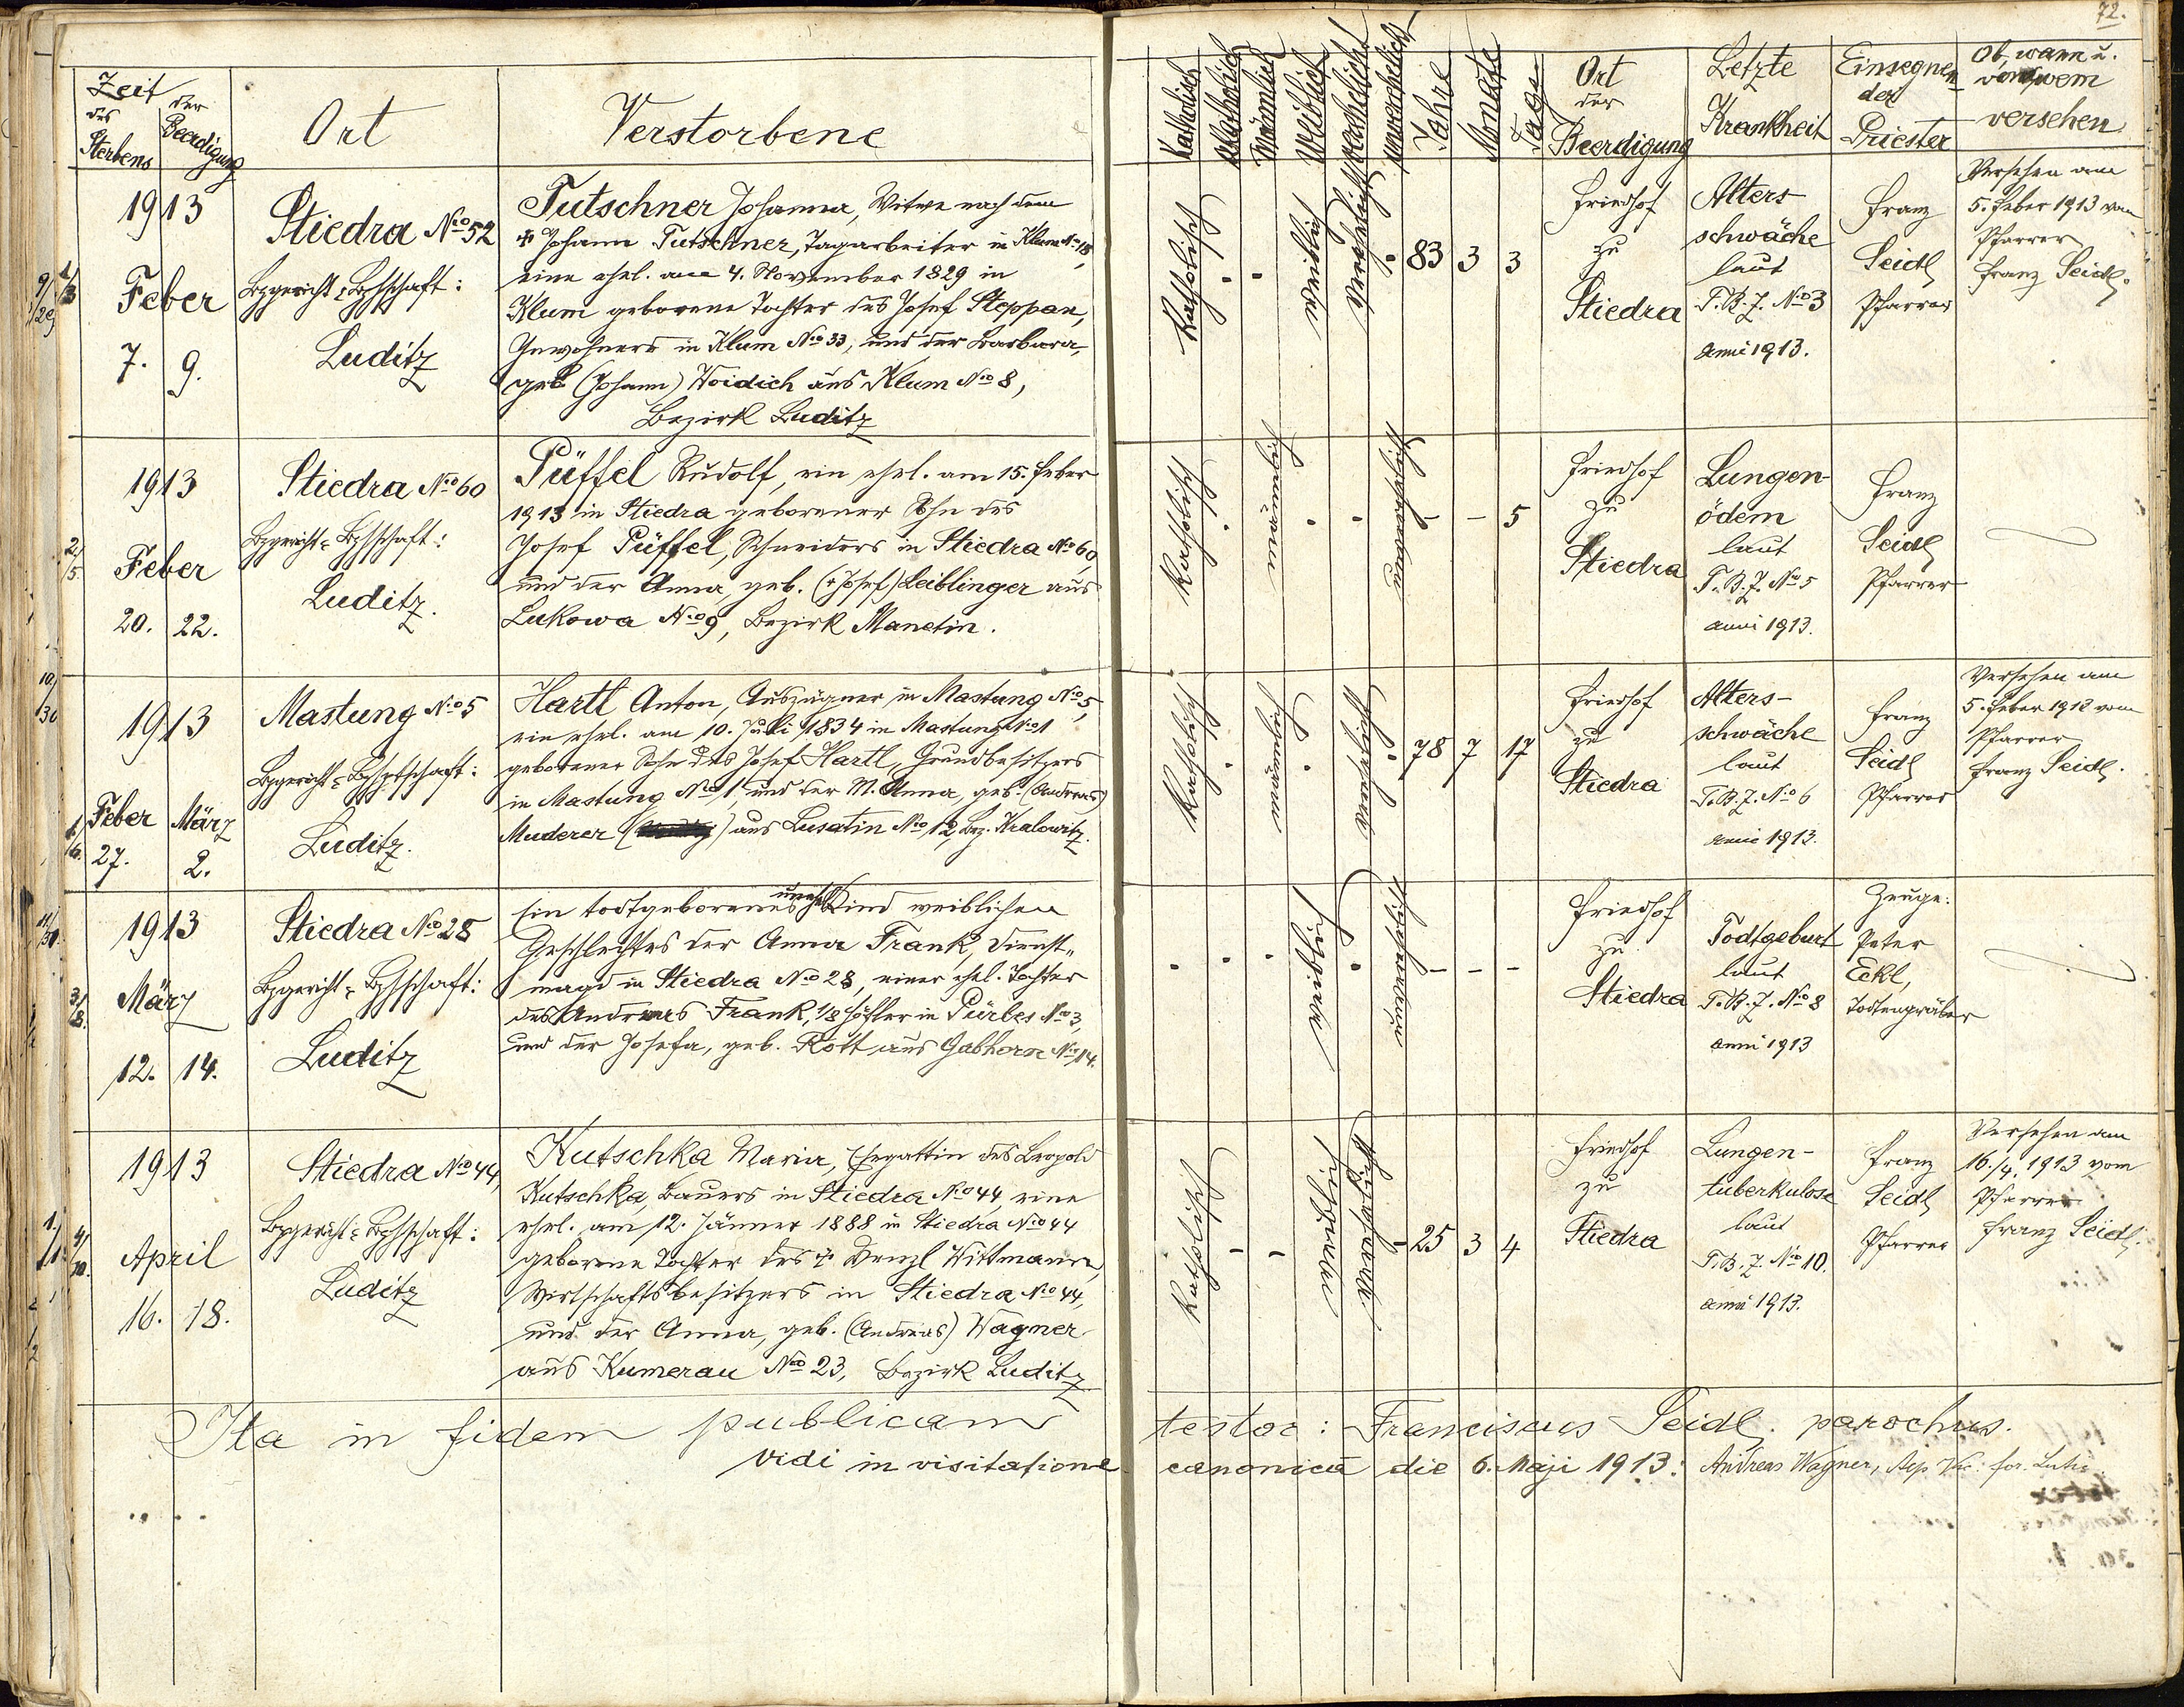 72.
Zeit
des Sterbens
der Beerdigung
Ort
Verstorbene
Katholisch
Akatholisch
Männlich
Weiblich
verehelicht
unverehelicht
Jahre
Monate
Tage
Ort
der
Beerdigung
Letzte
Krankheit
Einsegnen-
der
Priester
Ob, wann u.
von wem
versehen
1913
Feber
7. 9.
Stiedra No 52
Bzgericht u. Bzhptschaft:
Luditz
Tutschner Johanna, Witwe nach dem
+ Johann Tutschner, Tagarbeiter in Klum No 18,
eine ehel. am 4. November 1829 in
Klum geborene Tochter des Josef Steppan,
Inwohners in Klum No 33, und der Barbara,
geb (Johann) Woidich aus Klum No 8,
Bezirk Luditz
Katholisch
weiblich
verehelicht
83 3 3
Friedhof
zu
Stiedra
Alters-
schwäche
laut
T. B. Z. No 3
anni 1913.
Franz
Seidl
Pfarrer
Versehen am
5. Feber 1913 vom
Pfarrer
Franz Seidl.
1913
Feber
20. 22.
Stiedra No 60
Bzgericht u. Bzhptschaft:
Luditz.
Püffel Rudolf, ein ehel. am 15. Feber
1913 in Stiedra geborener Sohn des
Josef Püffel, Schneiders in Stiedra No 60,
und der Anna, geb. (+ Josef) Leiblinger aus
Lukowa No 9, Bezirk Manetin.
Katholisch
männlich
unverehelicht
- - 5
Friedhof
zu
Stiedra
Lungen-
ödem
laut
T. B. Z. No 5
anni 1913.
Franz
Seidl
Pfarrer
1913
Feber März
27. 2.
Mastung No 5
Bzgericht u. Bzhptschaft:
Luditz.
Hartl Anton, Auszügner in Mastung No 5,
ein ehel. am 10. Juli 1834 in Mastung No 1
geborener Sohn des Josef Hartl, Grundbesitzers
in Mastung No 1, und der M. Anna, geb. (Andreas)
Muderer aus Lusatin No 12, Bez. Kralowitz.
Katholisch
männlich
verehelicht
78 7 17
Friedhof
zu
Stiedra
Alters-
schwäche
laut
T. B. Z. No 6
anni 1913.
Franz
Seidl
Pfarrer
Versehen am
5. Feber 1913 vom
Pfarrer
Franz Seidl.
1913
März
12. 14.
Stiedra No 28
Bzgericht u. Bzhptschaft:
Luditz
Ein todtgeborenes unehel. Kind weiblichen
Geschlechtes der Anna Frank, Dienst-
magd in Stiedra No 28, einer ehel. Tochter
des Andreas Frank, 1/8 Höfler in Pürles No 3,
und der Josefa, geb. Rott aus Gabhorn No 14.
weiblich
unverehelicht
- - -
Friedhof
zu
Stiedra
Todtgeburt
laut
T. B. Z. No 8
anni 1913
Zeuge:
Peter
Eckl,
Todtengräber
1913
April
16. 18.
Stiedra No 44,
Bzgericht u. Bzhptschaft:
Luditz
Kutschka Maria, Ehegattin des Leopold
Kutschka, Bauers in Stiedra No 44, eine
ehel. am 12. Jänner 1888 in Stiedra No 44
geborene Tochter des + Wenzl Wittmann,
Wirtschaftsbesitzers in Stiedra No 44,
und der Anna, geb. (Andreas) Wagner
aus Kumerau No 23, Bezirk Luditz
Katholisch
weiblich
verehelicht
25 3 4
Friedhof
zu
Stiedra
Lungen-
tuberkulose
laut
T. B. Z. No 10.
anni 1913.
Franz
Seidl
Pfarrer
Versehen am
16./4. 1913 vom
Pfarrer
Franz Seidl.
Ita in fidem publicam testor: Franciscus Seidl. parochus.
Vidi in visitatione canonica die 6. Maji 1913: Andreas Wagner,